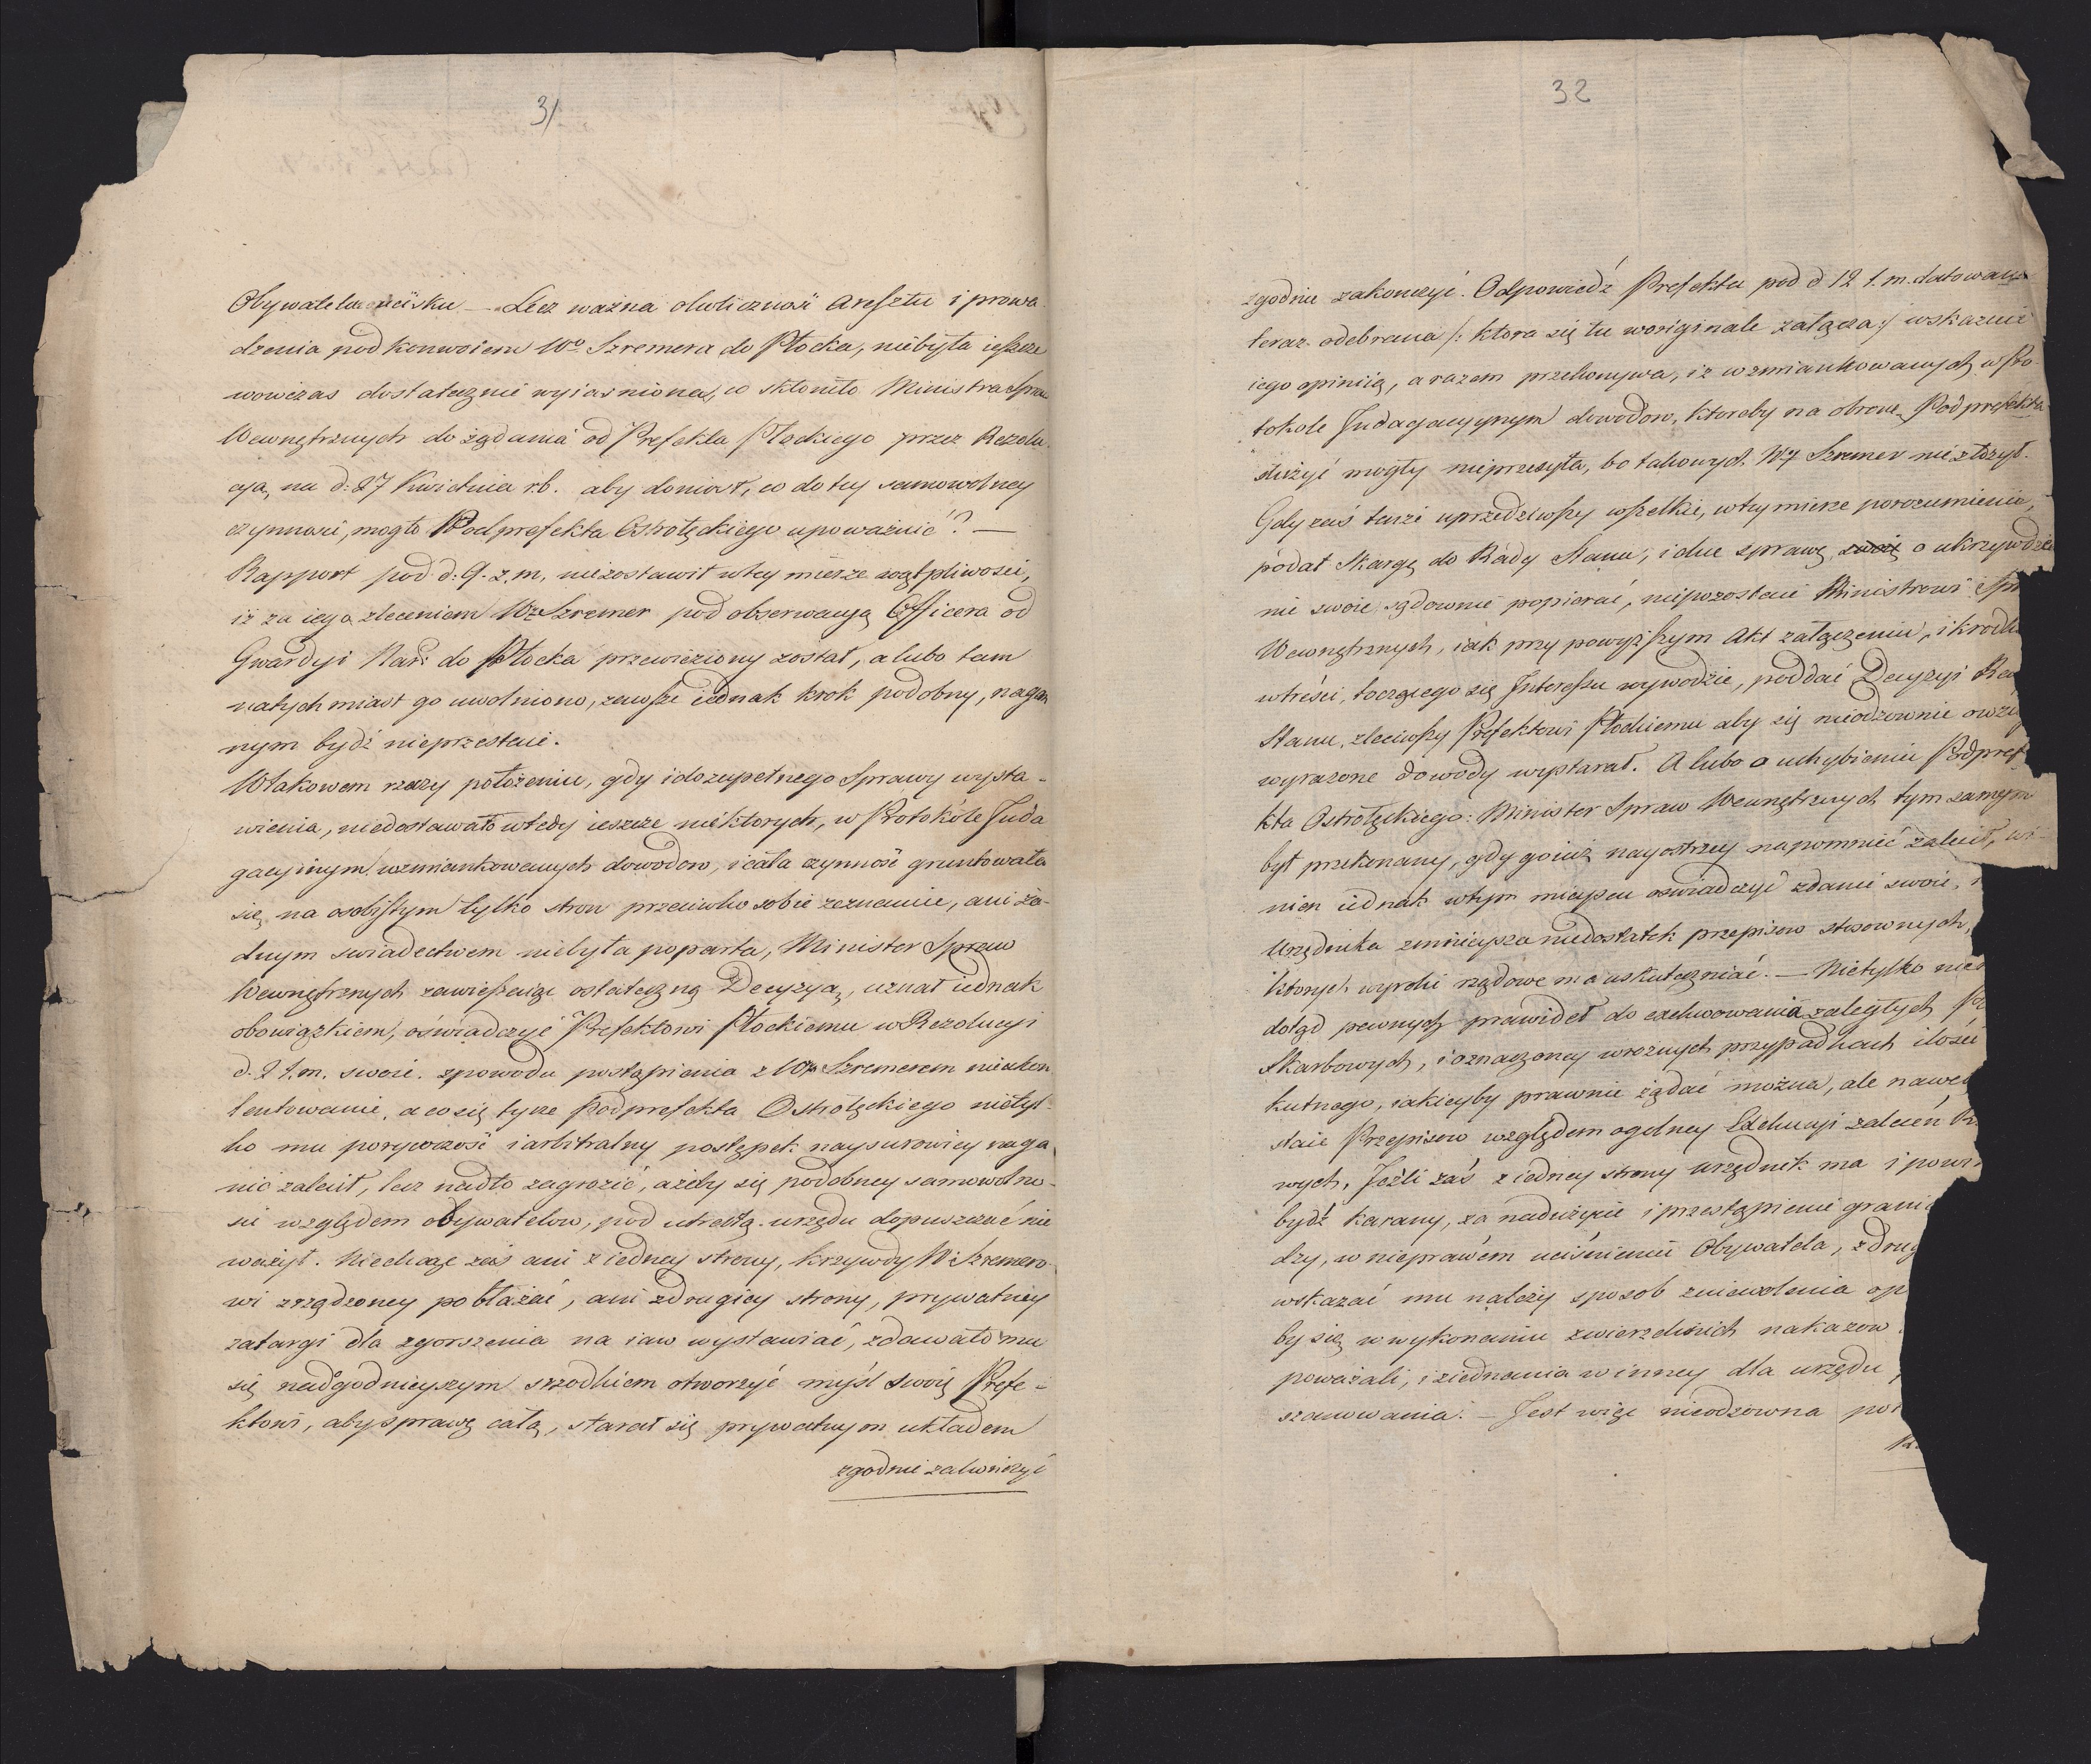 31
Obywatela ucisku — Lecz ważna okoliczność aresztu i prowa-
dzenia pod konwoiem Wo Szremera do Płocka, niebyła ieszcze
wowczas dostatecznie wyiasniona, co skłoniło Ministra Spraw
Wewnętrznych do żądania od Prefekta Płockiego przez Rezolu-
cyą na d: 27 Kwietnia r.b. aby doniosł, co do tey samowolney
czynności, mogło Podprefekta Ostrołęckiego upoważnić? —
Rapport pod d: 9. z. m. niezostawił w tey mierze wątpliwosci,
iż za iego zleceniem Wny Szremer pod obserwacyą Officera od
Gwardyi Nar: do Płocka przewieziony został, a lubo tam
natychmiast go uwolniono, zawsze iednak krok podobny, nagan-
nym bydź nieprzestaie.
W takowem rzeczy położeniu, gdy i do zupełnego Sprawy wysta-
wienia, niedostawało wtedy ieszcze niektorych, w Protokóle Inda
gacyinym wzmiankowanych dowodow, i cała czynność gruntowała
się na osobistym tylko stron przeciwko sobie zeznanie, ani ża-
dnym swiadectwem niebyła poparta, Minister Spraw
Wewnętrznych zawieszaiąc ostateczną Decyzyą, uznał iednak
obowiązkiem, oświadczyć Prefektowi Płockiemu w Rezolucyi
d. 2 t. m. swoie z powodu postąpienia z Wym Szremerem nieukon
tentowanie, a co się tycze Podprefekta Ostrołęckiego nietyl-
ko mu porywczość i arbitralny postępek naysurowiey naga
nić zalecił, lecz nadto zagrozić, ażeby się podobney samowolno-
sci względem obywatelow, pod utratą urzędu dopuszczać nie
ważył. Niechcąc zaś ani z iedney strony, krzywdy W: Szremero-
wi zrządzoney pobłażać, ani z drugiey strony, prywatney
zatargi dla zgorszenia na iaw wystawiać, zdawało mu
się nadgodnieyszym srzodkiem otworzyć myśl swoię Prefe-
ktowi, aby sprawę całą, starał się prywatnym układem
zgodnie zakończyć
32
zgodnie zakonczyć. Odpowiedź Prefekta pod d 12 t. m. datowana
teraz odebrana /: ktora się tu w originale załącza :/ wskazuie
iego opiniią, a razem przekonywa, iż wzmiankowanych w Pro-
tokole Indagacyynym dowodow, ktoreby na obronę Podprefekta
służyć mogły nieprzesyła, bo takowych Wy Szremer nie złożył.
Gdy zaś tenże uprzedziwszy wszelkie, w tey mierze porozumienie,
pódał skargę do Rady Stanu, i chce sprawę swoię o ukrzywdze
nie swoie sądownie popierać, niepozostaie Ministrowi Spr
Wewnętrznych, iak przy powyższym akt załączeniu, i krotk
w treści, toczącego się Interessu wywodzie, poddać Decyzyi Ra
Stanu, zleciwszy Prefektowi Płockiemu aby się nieodzownie o wzu
wyrażone dowody wystarał. A lubo o uchybieniu Podpref
kta Ostrołęckiego: Minister Spraw Wewnętrznych tym samym
był przekonany, gdy go iuż nayostrzey napomnieć zalecił, wi-
nien iednak w tym mieyscu oświadczyć zdanie swoie,
Urzędnika zmnieysza niedostatek przepisow stosownych,
ktorych wyroki rządowe ma uskuteczniać. — Nietylko nie
dotąd pewnych prawideł do exekwowania zaległych Po
Skarbowych, i oznaczoney w rożnych przypadkach ilości
kutnego, iakieyby prawnie żądać można, ale nawe
staie Przepisow względem ogulney Exekucyi zaleceń
wych. Jeżli zaś z iedney strony urzędnik ma i powi
bydź karany, za nadużycie i przestąpienie grani
dzy, w nieprawem uciśnieniu Obywatela, z drug
wskazać mu należy sposob zniewolenia op
by się w wykonaniu zwierzchnich nakazow
poważali, i ziednania winney dla urzędu
szanowania. — Jest więc nieodzowna po